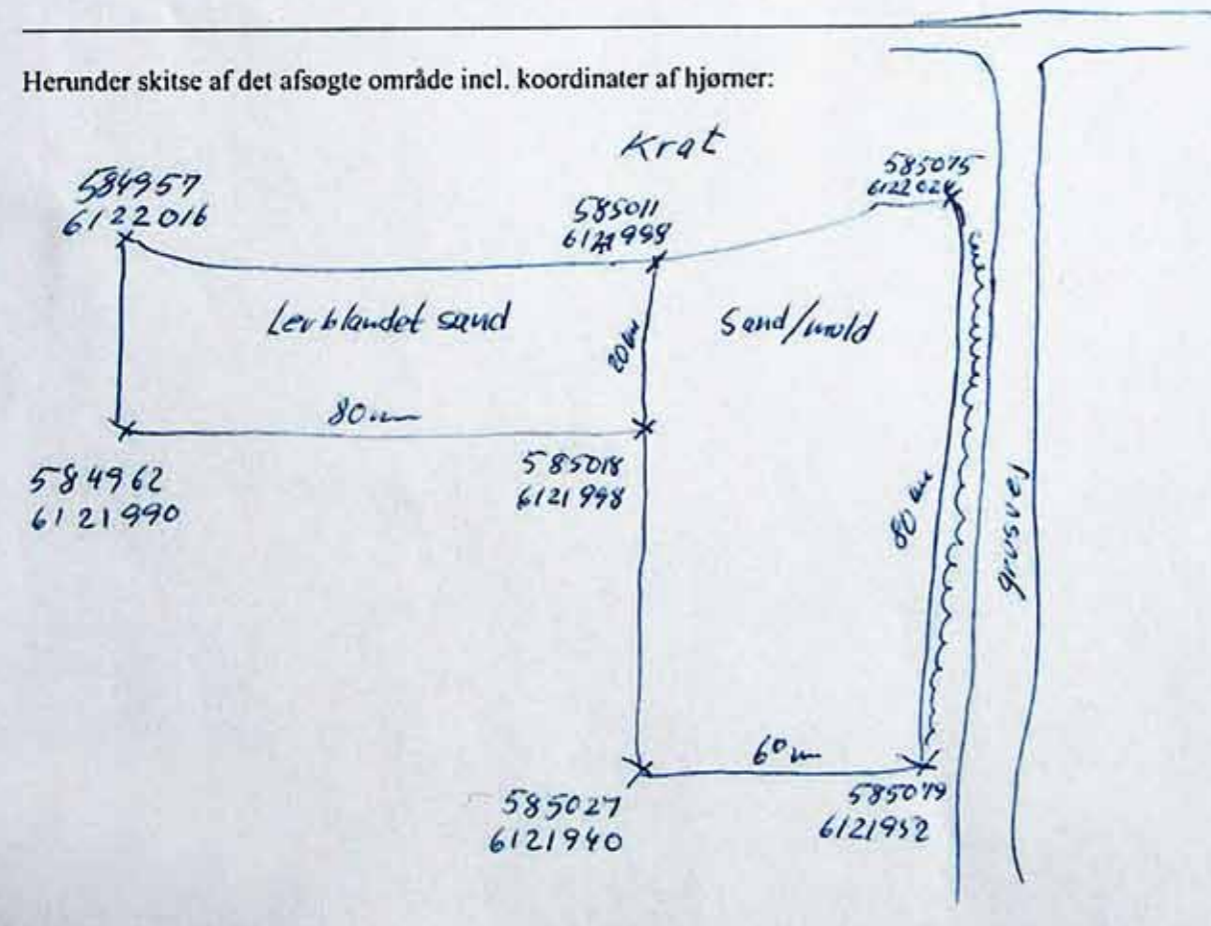 Herunder skitse af det afsøgte område incl. koordinater af hjørner:
Krat
584957
6122016
585011
585075
Lerblandet sand
20m
Sand/muld
80m
584962
6121990
585018
6121998
80m
grusvej
60m
585027
6121940
585079
6121952